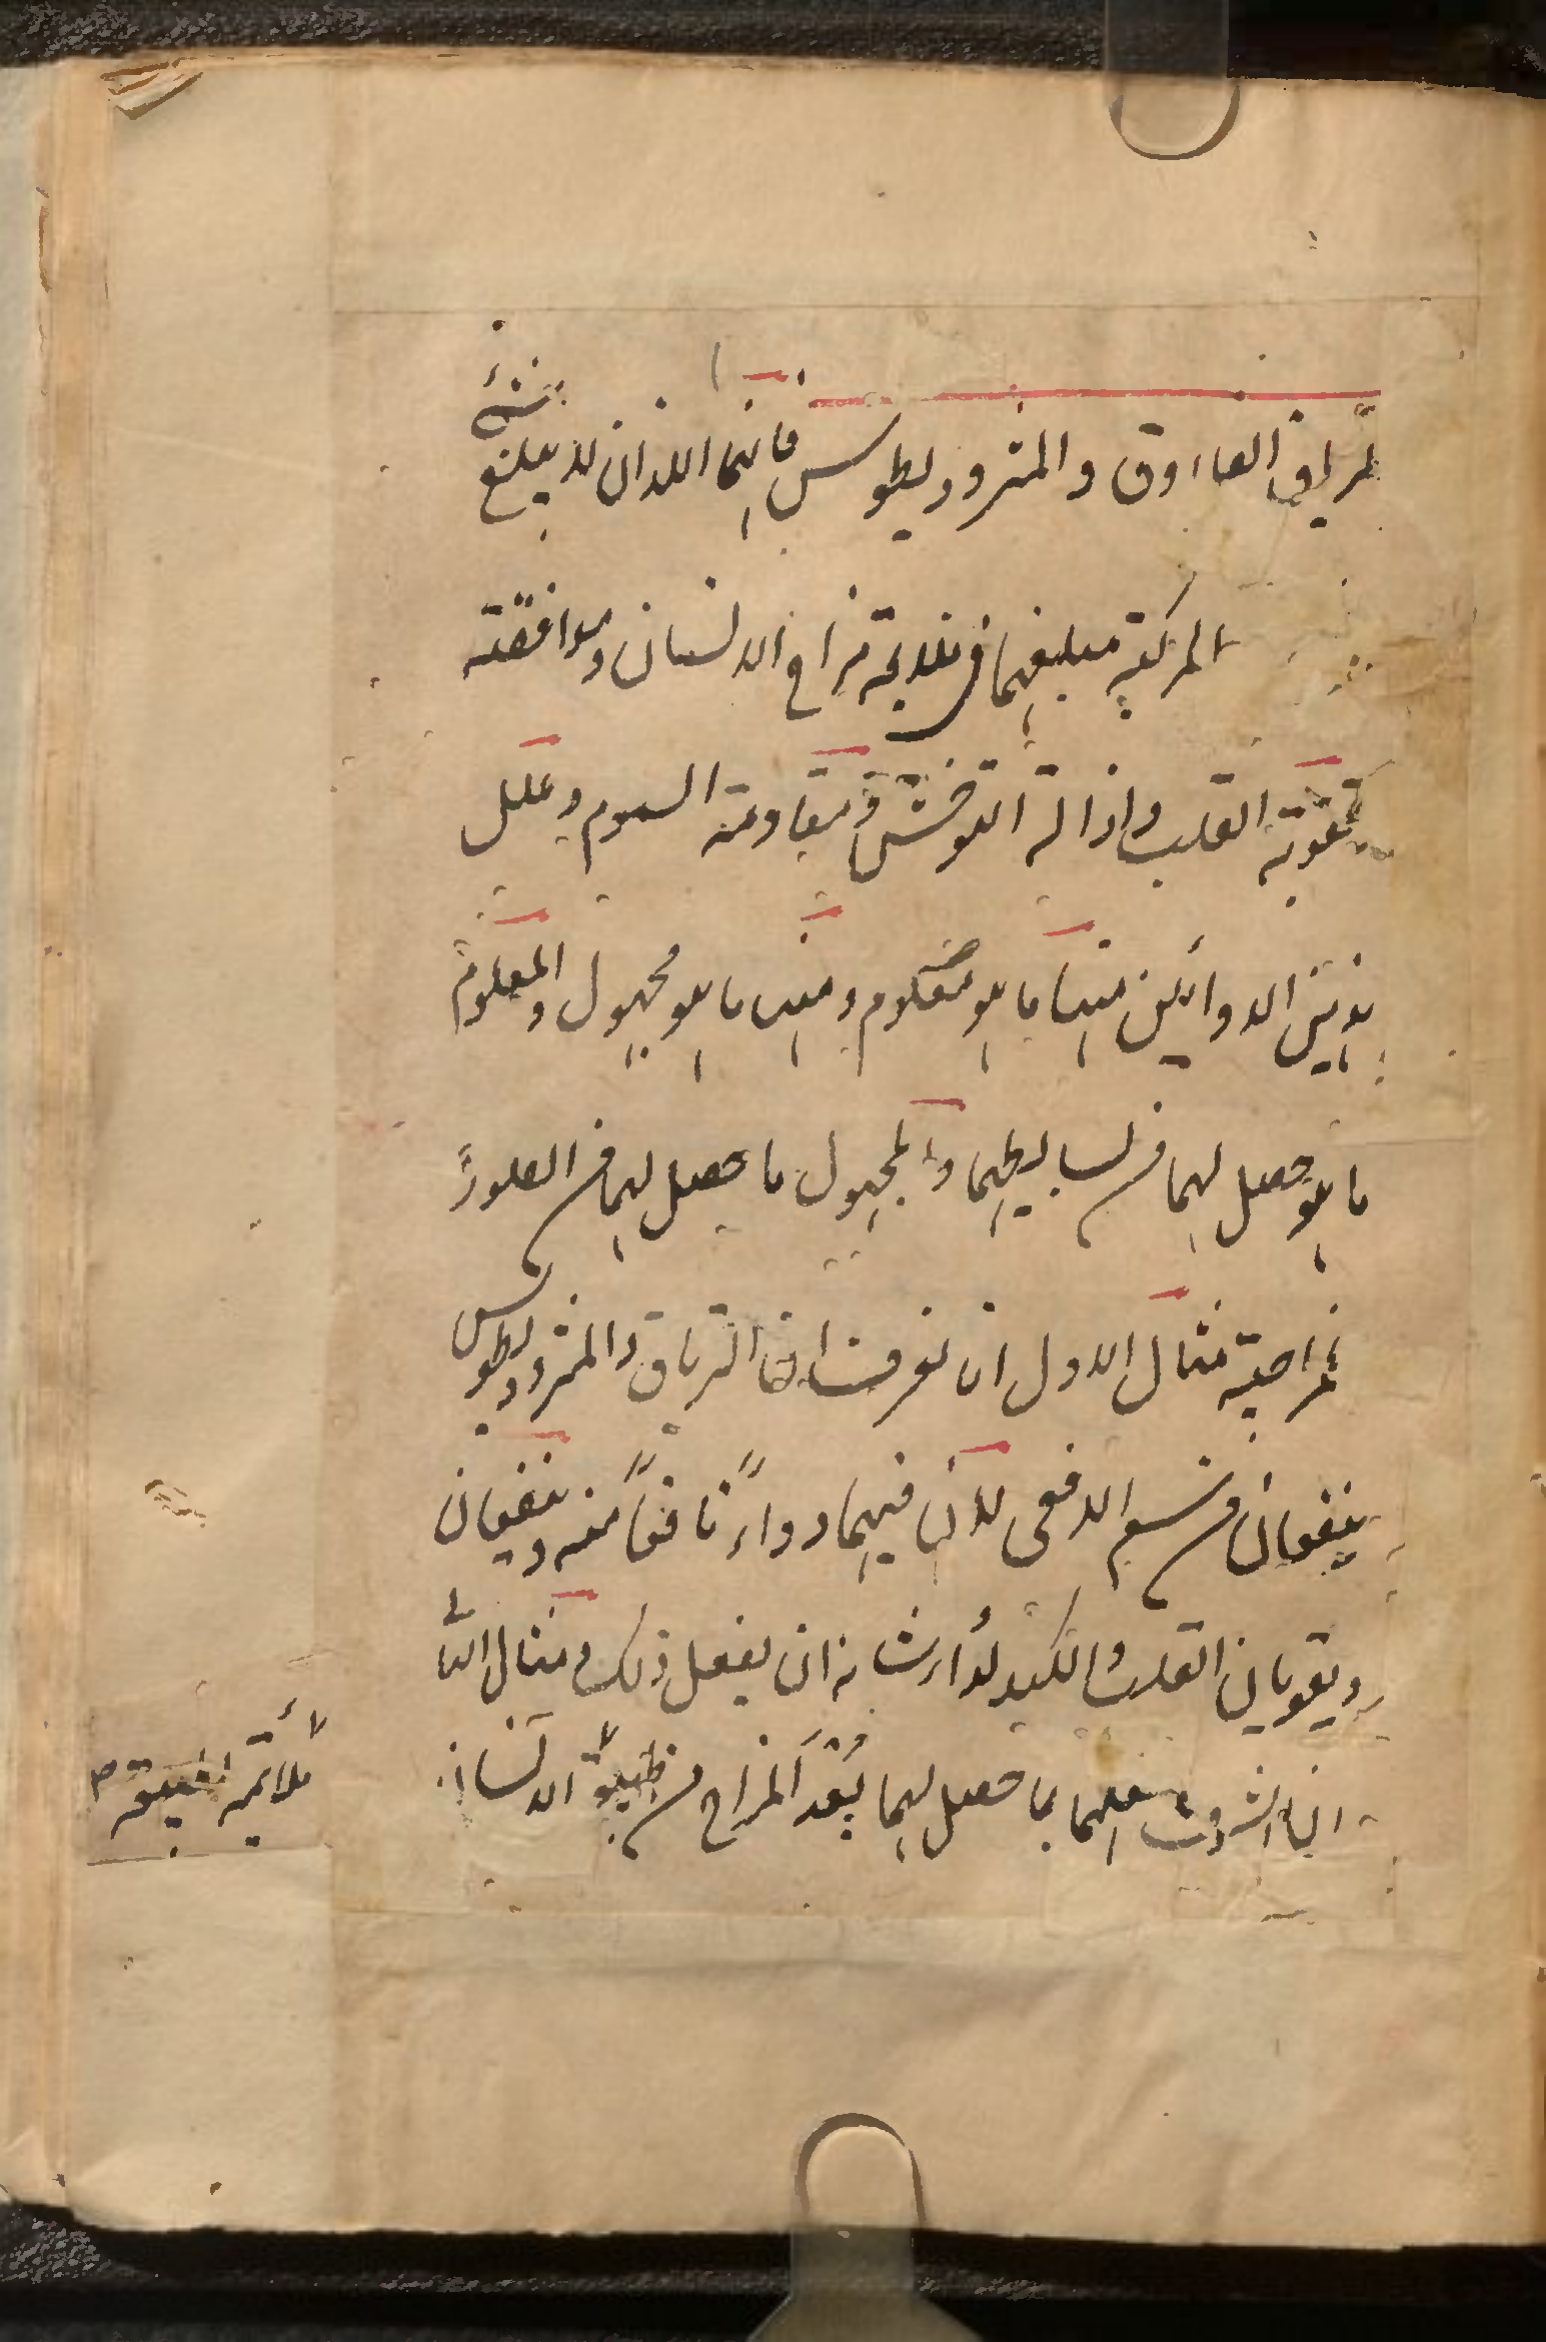 الترياق الفاروق والمثروديطوس فانهما اللذان لا يبلغ شئ
المركبة مبلغهما فى ملايمة مزاج الانسان وموافقته
تقوية القلب وازالة التوحش ومقاومة السموم وعلل
هذين الدوائين منها ما هو معلوم ومنها ما هو مجهول والمعلوم
ما هو حصل لهما من بسايطهما والمجهول ما حصل لهما من الصورة
المزاجية مثال الاول ان نعرف ان الترياق والمثروديطوس
ينفعان من سم الافعى لان فيهما دواءً نافعاً منه وينفعان
ويقويان القلب والكبد لدواء من شانه ان يفعل ذلك ومثال الثانى
ان نعلم ان بما حصل لهما بعد المزاج من طبيعة الانسان
ملائمة